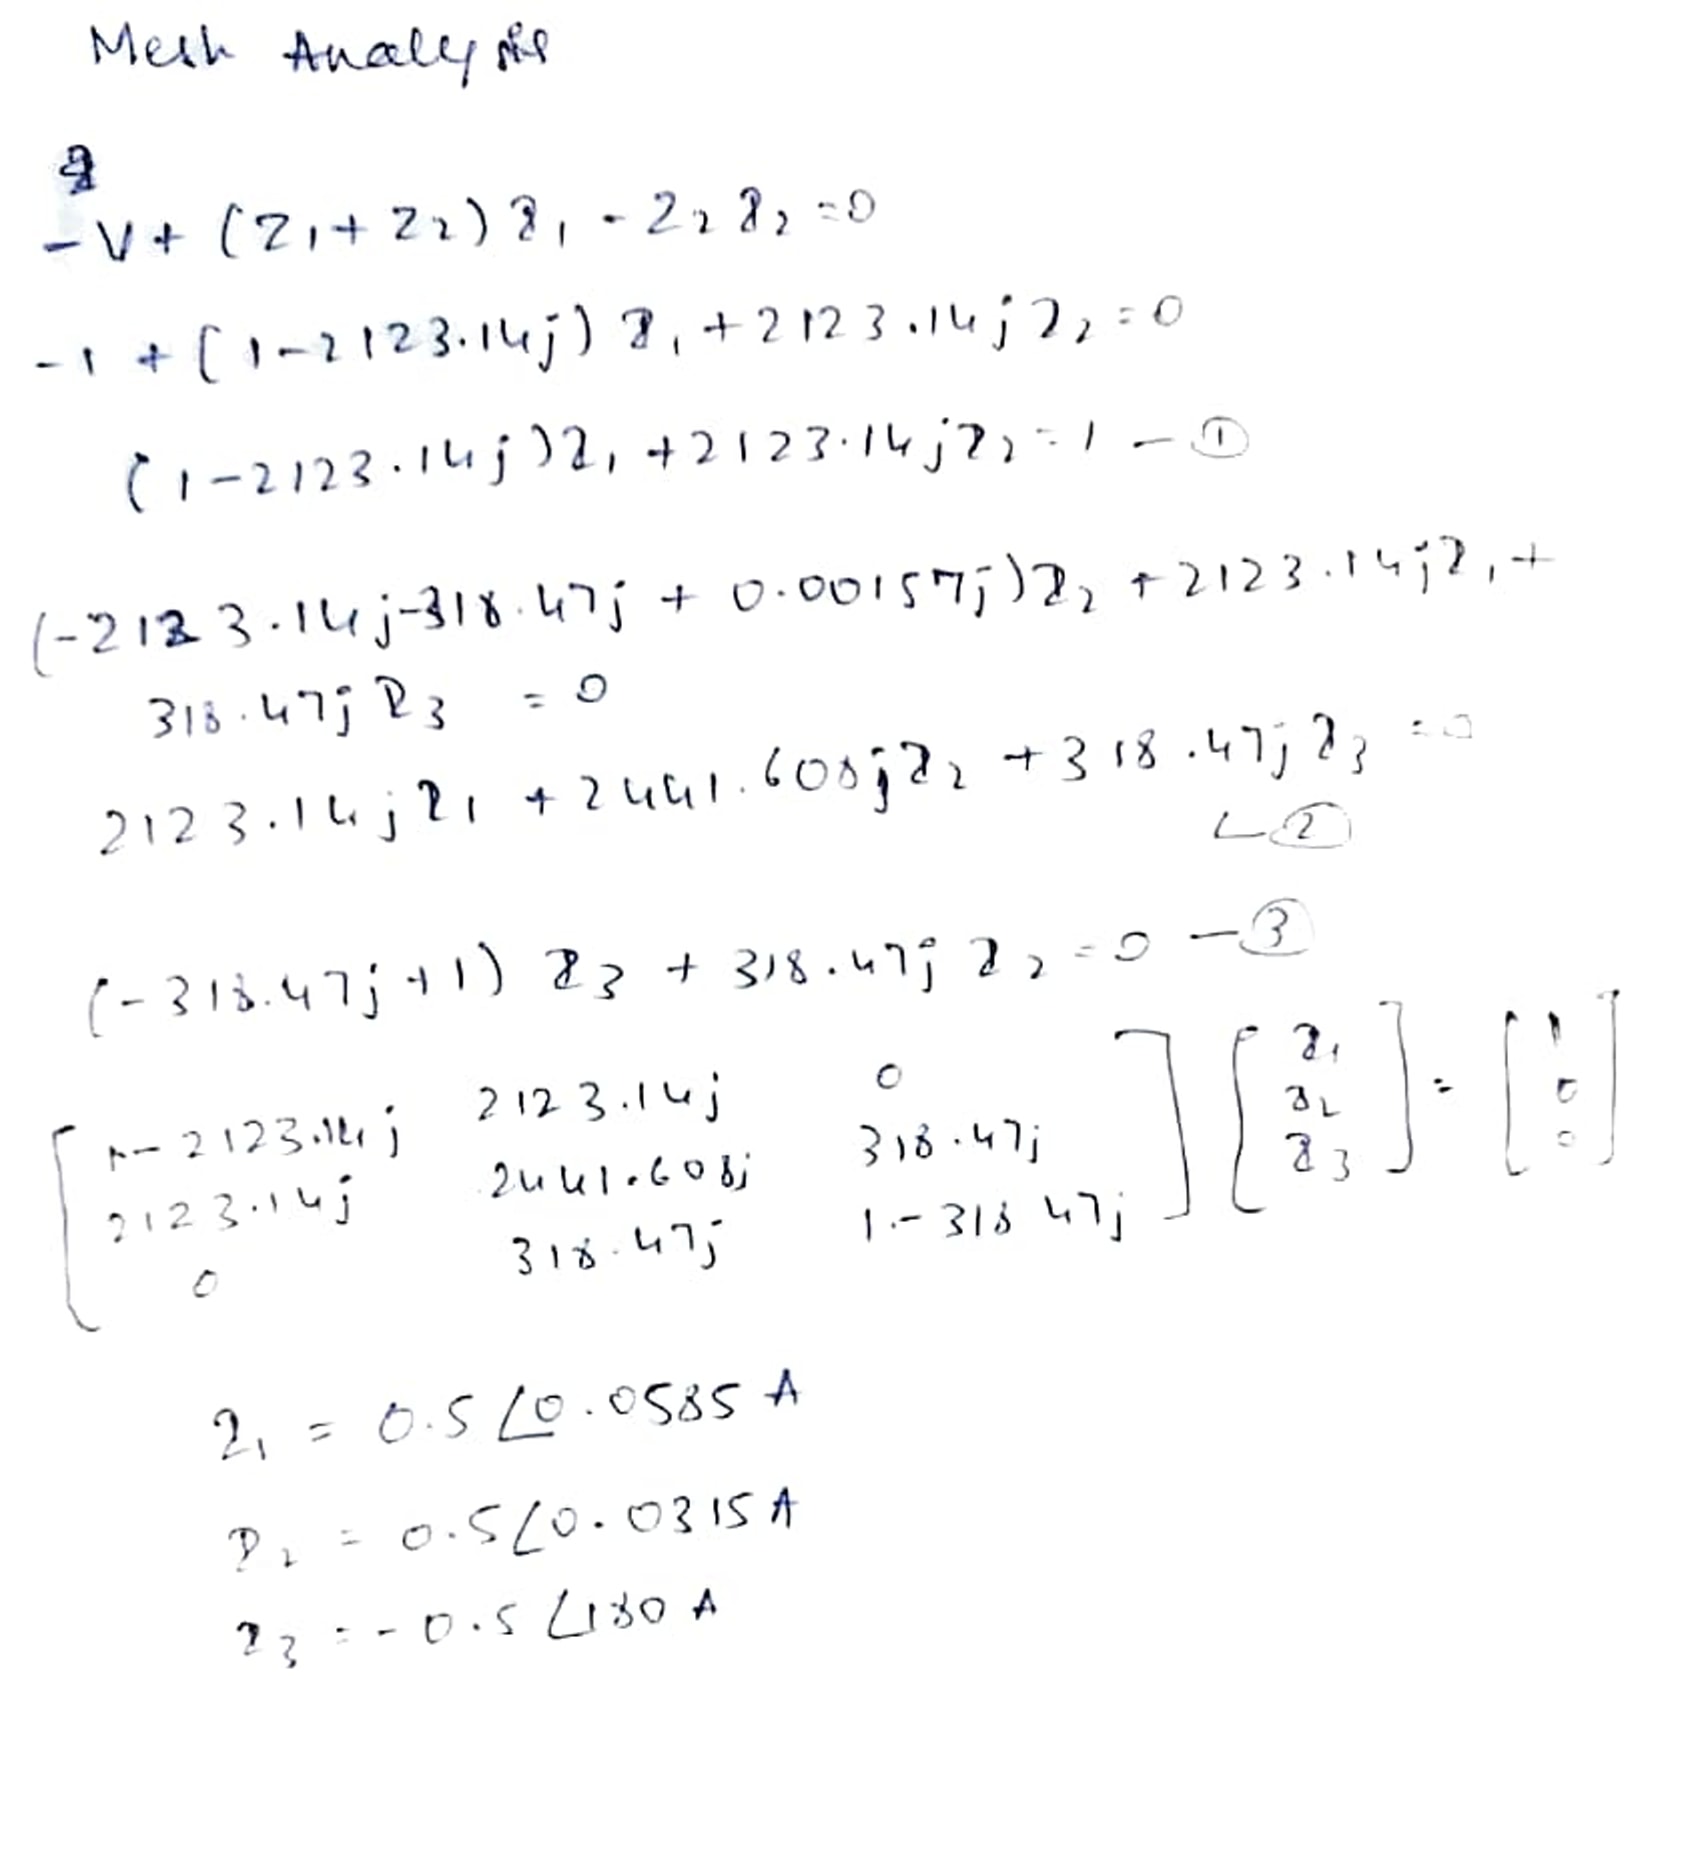 Mesh Analysis
-V + (Z1 + Z2) I1 - Z2 I2 = 0
-1 + (1-2123.14j) I1 + 2123.14j I2 = 0
(1-2123.14j) I1 + 2123.14j I2 = 1 - ①
(-2123.14j-318.47j + 0.00157j) I2 + 2123.14j I1 +
318.47j I3 = 0
2123.14j I1 + 2441.608j I2 + 318.47j I3 = 0
②
(-318.47j+1) I3 + 318.47j I2 = 0 - ③
[ 1-2123.14j 2123.14j 0 ] [ I1 ] = [ 1 ]
[ 2123.14j 2441.608j 318.47j ] [ I2 ] [ 0 ]
[ 0 318.47j 1-318.47j ] [ I3 ] [ 0 ]
I1 = 0.5 ∠0.0585 A
I2 = 0.5 ∠0.0315 A
I3 = -0.5 ∠180 A